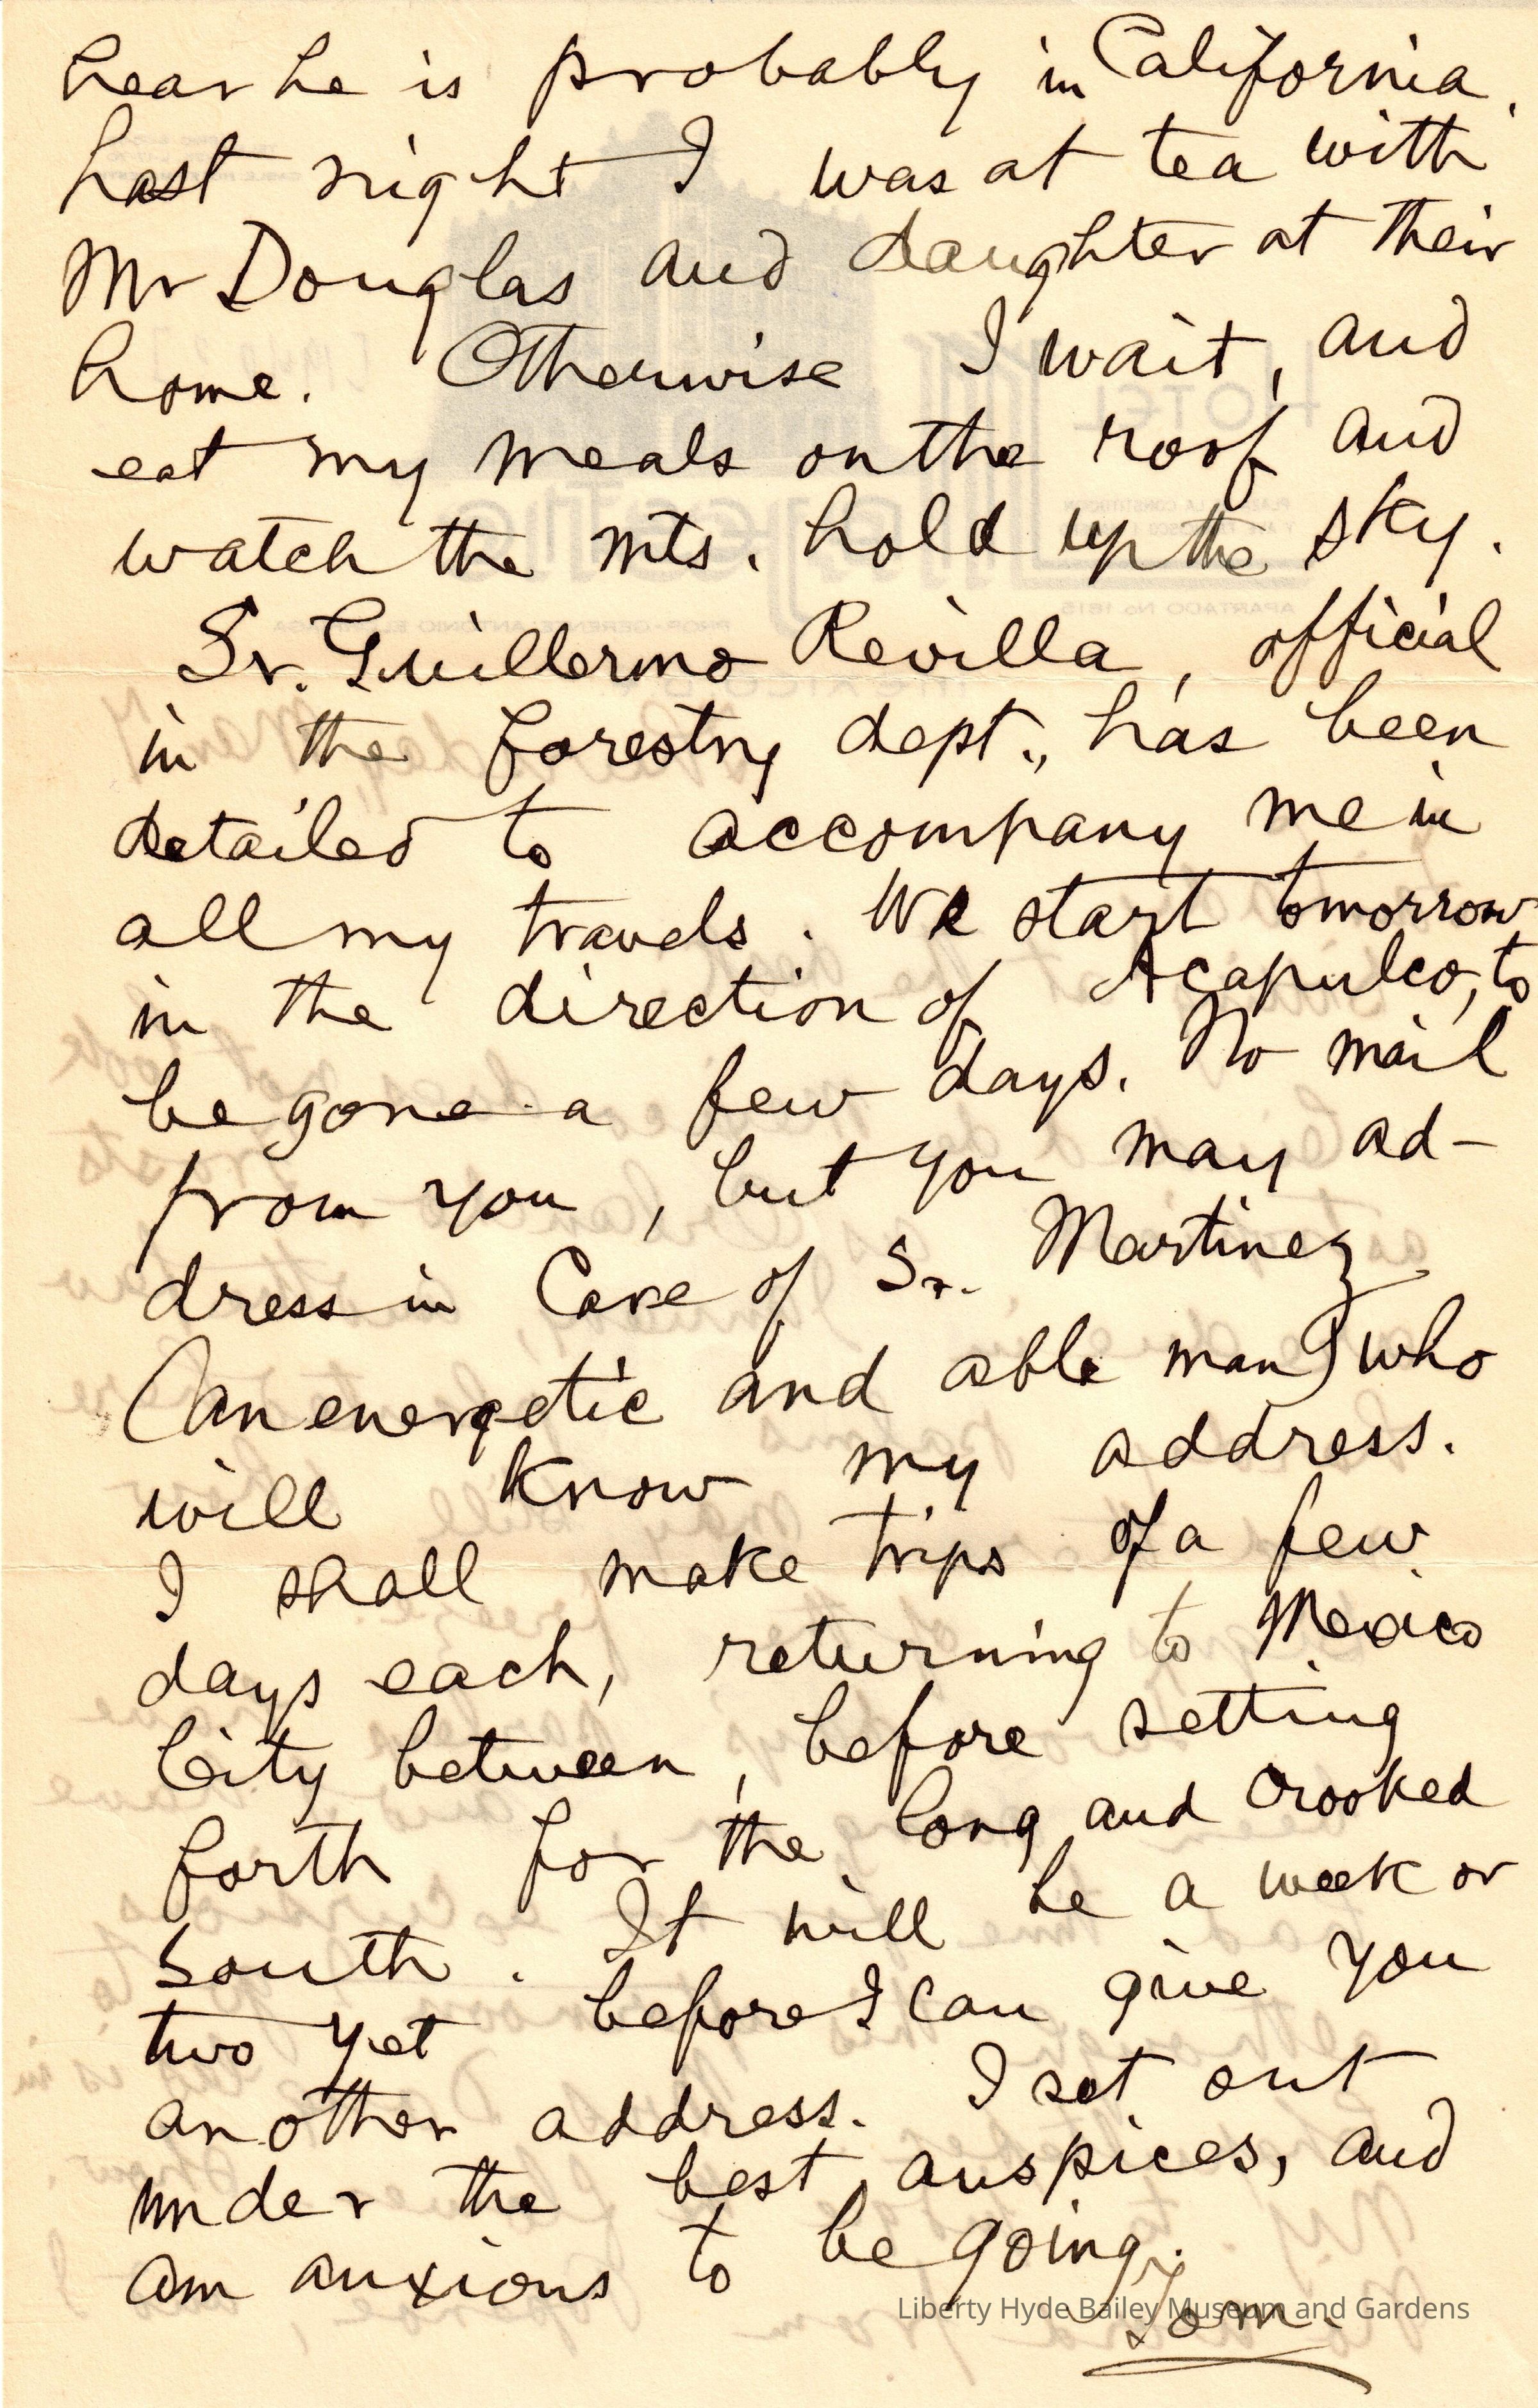 hear he is probably in California.
Last night I was at tea with
Mr Douglas and daughter at their
home. Otherwise I wait, and
eat my meals on the roof and
watch the mts. hold up the sky.
Sr. Guillermo Revilla, official
in the forestry dept., has been
detailed to accompany me in
all my travels. We start tomorrow
in the direction of Acapulco, to
be gone a few days. No mail
from you, but you may ad-
dress in Care of Sr. Martinez
(an energetic and able man) who
will know my address.
I shall make trips of a few
days each, returning to Mexico
City between, before setting
forth for the long and crooked
south. It will be a week or
two yet before I can give you
another address. I set out
under the best auspices, and
am anxious to be going.
Tom.
Liberty Hyde Bailey Museum and Gardens